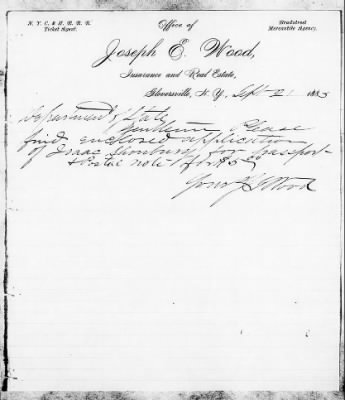 N.Y.C. & H.R.R.R.
Ticket Agent.
Office of
Bradstreet
Mercantile Agency.
Joseph E. Wood,
Insurance and Real Estate,
Gloversville, N.Y., Sept 21 1885
Department of State
Gentlemen Please
find enclosed application
of Isaac for Passport
& Postal note for $5.00
Yours J E Wood